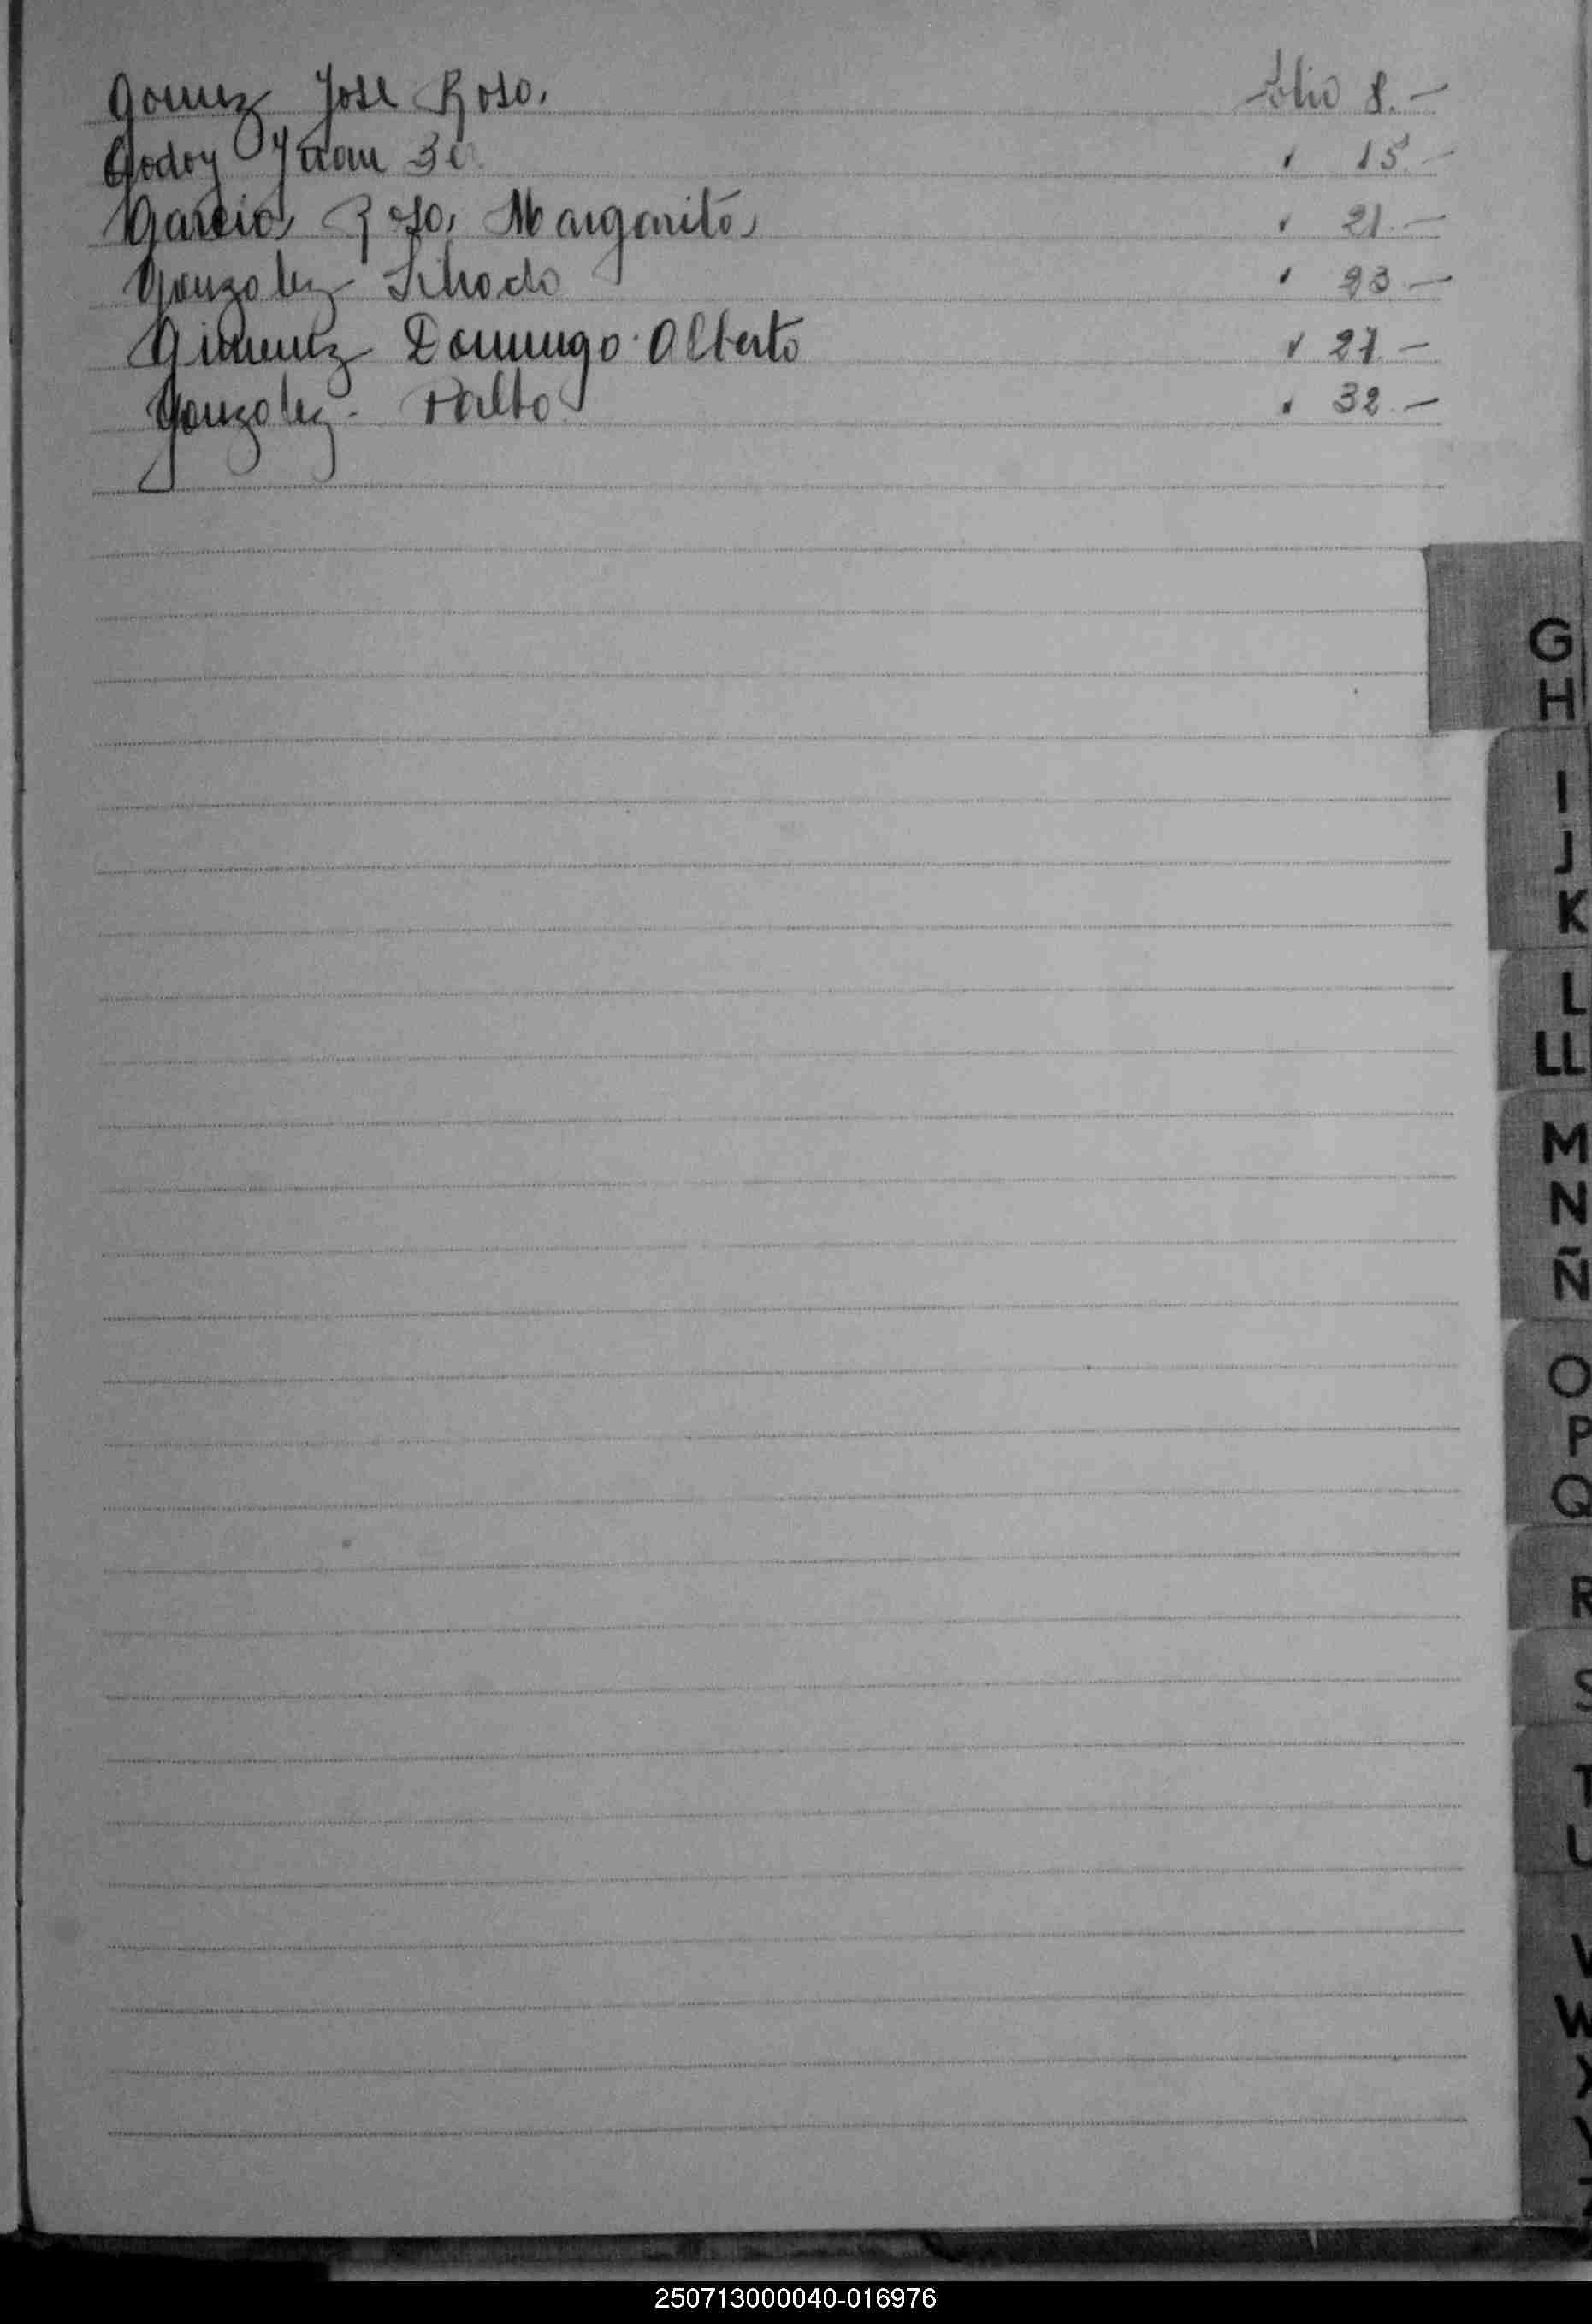 Gomez Jose Rosa. folio 8.-
Godoy Juan " 15.-
Garcia Rosa Margarita " 21.-
Gonzalez " 23.-
Gimenez Domingo Alberto " 27.-
Gonzalez " 32.-
G
H
I
J
K
L
LL
M
N
Ñ
O
P
Q
R
S
T
U
V
W
X
Y
Z
250713000040-016976